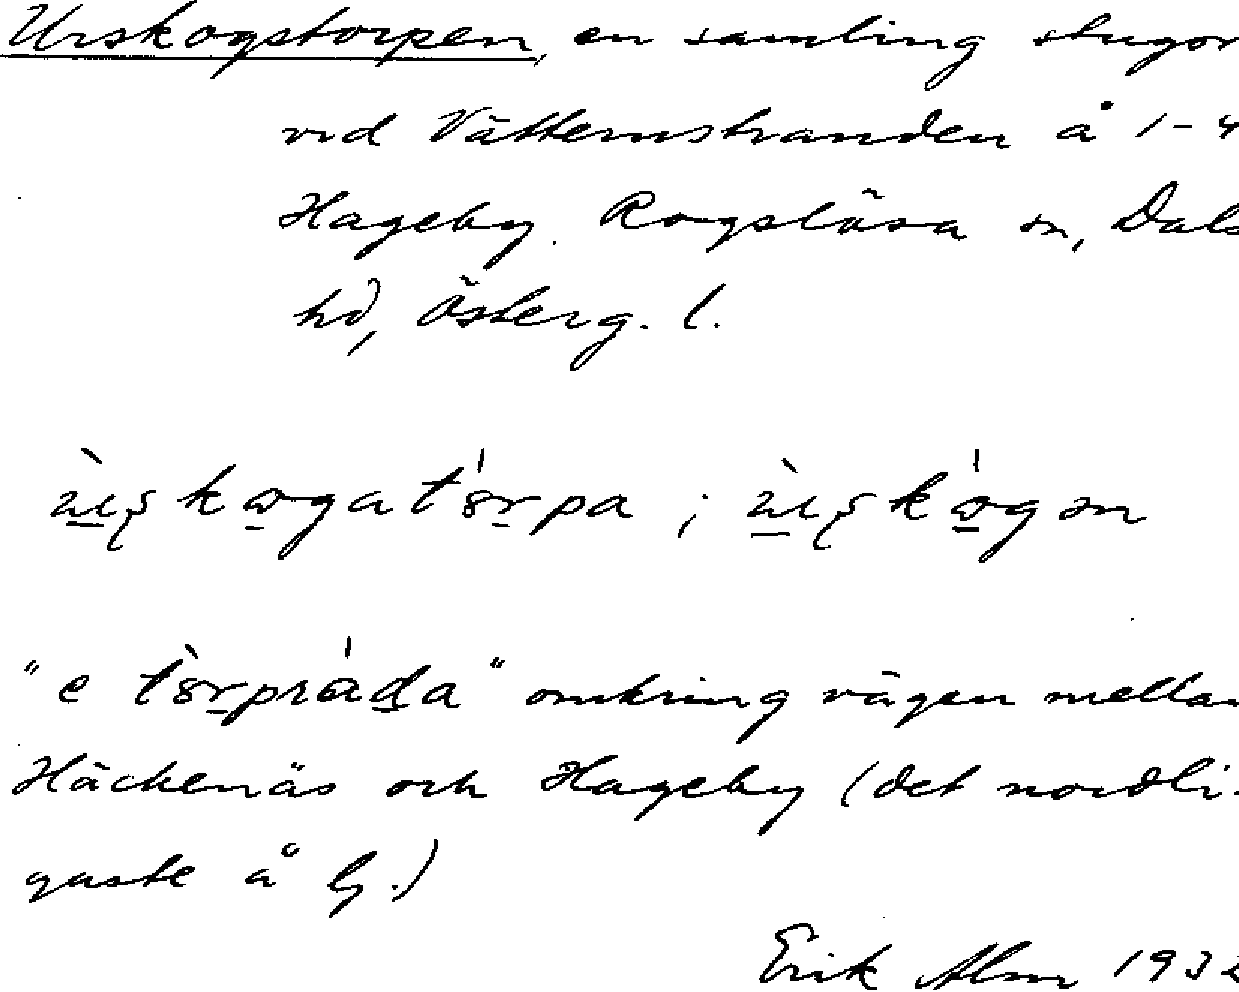 Urskogstorpen, en samling stugor
vid Vätternstranden å 1-4
Hageby. Rogslösa sn, Dals
hd, Österg. l.
"e omkring vägen mellan
Häckenäs och Hageby (det nordli-
gaste å Hg.)
Erik Alm 1932